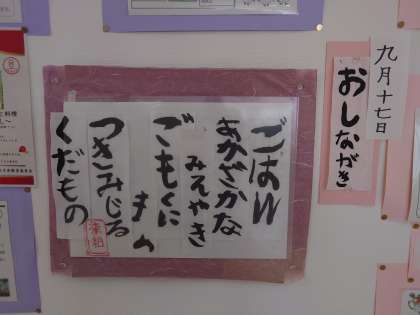 九月十七日
おしながき
ごはん
あかざかな
みそやき
ごもくに
まめ
つきみじる
くだもの